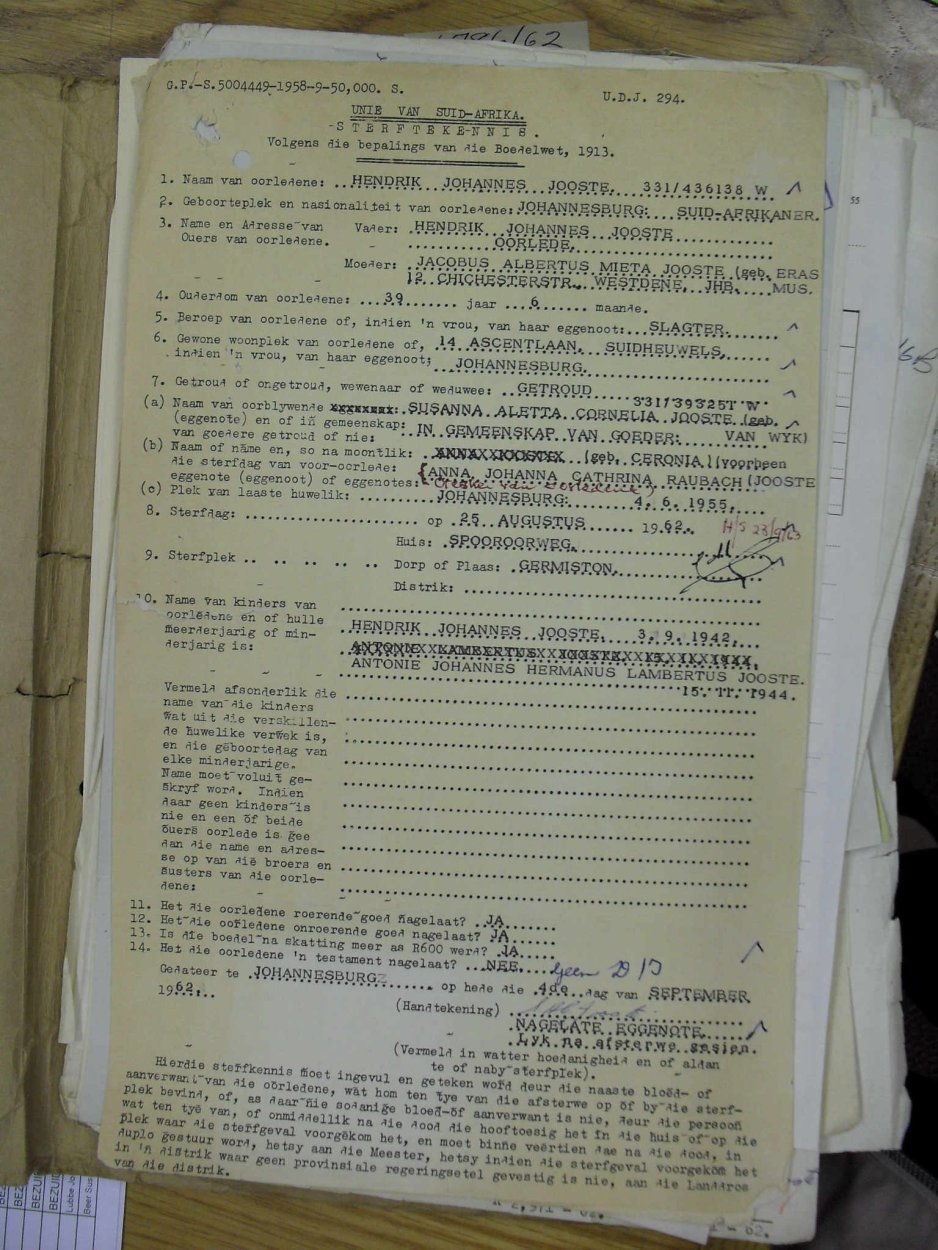 1796/62
G.P.-S.5004449-1958-9-50,000. S.
U.D.J. 294.
UNIE VAN SUID-AFRIKA.
STERFTEKENNIS.
Volgens die bepalings van die Boedelwet, 1913.
1. Naam van oorledene: ..HENDRIK JOHANNES JOOSTE. 331/436138 W.
2. Geboorteplek en nasionaliteit van oorledene: JOHANNESBURG: SUID-AFRIKANER.
3. Name en Adresse van Vader: HENDRIK JOHANNES JOOSTE
Ouers van oorledene. OORLEDE.
Moeder: JACOBUS ALBERTUS MIETA JOOSTE (geb. ERAS
12 CHICHESTERSTR. WESTDENE, JHB. MUS.
4. Ouderdom van oorledene: ...39........ jaar ..6...... maande.
5. Beroep van oorledene of, indien 'n vrou, van haar eggenoot: SLAGTER.
6. Gewone woonplek van oorledene of, 14 ASCENTLAAN, SUIDHEUWELS,
indien 'n vrou, van haar eggenoot; JOHANNESBURG.
7. Getroud of ongetroud, wewenaar of weduwee: GETROUD
331/393251 W
(a) Naam van oorblywende xxxxxxxx: SUSANNA ALETTA CORNELIA JOOSTE (geb.
(eggenote) en of in gemeenskap: IN GEMEENSKAP VAN GOEDER: VAN WYK)
van goedere getroud of nie:
(b) Naam of name en, so na moontlik: (geb. CERONIA) (voorheen
die sterfdag van voor-oorlede: ANNA JOHANNA CATHRINA RAUBACH (JOOSTE
eggenote (eggenoot) of eggenotes: (Geskei van oorledene)
(c) Plek van laaste huwelik: JOHANNESBURG: 4. 6. 1955.
8. Sterfdag: ...................... op 25 AUGUSTUS 1962. H/S 23/9/63
Huis: SPOOROORWEG.
9. Sterfplek .. .. .. .. .. Dorp of Plaas: GERMISTON.
Distrik: ........................
10. Name van kinders van
oorledene en of hulle
meerderjarig of min- HENDRIK JOHANNES JOOSTE, 3. 9. 1942.
derjarig is:
ANTONIE JOHANNES HERMANUS LAMBERTUS JOOSTE.
15. 11. 1944.
Vermeld afsonderlik die
name van die kinders
wat uit die verskillen-
de huwelike verwek is,
en die geboortedag van
elke minderjarige.
Name moet voluit ge-
skryf word. Indien
daar geen kinders is
nie en een of beide
ouers oorlede is gee
dan die name en adres-
se op van die broers en
susters van die oorle-
dene:
11. Het die oorledene roerende goed nagelaat? .JA.......
12. Het die oorledene onroerende goed nagelaat? JA......
13. Is die boedel na skatting meer as R600 werd? JA.....
14. Het die oorledene 'n testament nagelaat? ...NEE....
Gedateer te .JOHANNESBURG....... op hede die .4de..dag van SEPTEMBER
1962...
(Handtekening)
NAGELATE EGGENOTE.
Lyk na afsterwe gesien.
(Vermeld in watter hoedanigheid en of aldan
te of naby sterfplek).
Hierdie sterfkennis moet ingevul en geteken word deur die naaste bloed- of
aanverwant van die oorledene, wat hom ten tye van die afsterwe op of by die sterf-
plek bevind, of, as daar nie sodanige bloed-of aanverwant is nie, deur die persoon
wat ten tyē van, of onmiddellik na die dood die hooftoesig het in die huis of op die
plek waar die sterfgeval voorgekom het, en moet binne veertien dae na die dood, in
duplo gestuur word, hetsy aan die Meester, hetsy indien die sterfgeval voorgekom het
in 'n distrik waar geen provinsiale regeringsetel gevestig is nie, aan die Landdros
van die distrik.
55
BEZUID
BEZUID
BEZUI
Lubbe Jo
Beer Sus